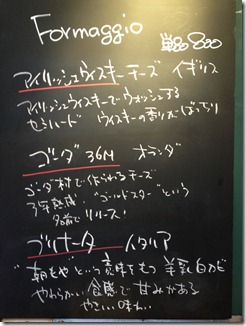 Formaggio 単品 800
アイリッシュウィスキーチーズ イギリス
アイリッシュウイスキーでウォッシュする
セミハード ウイスキーの香りがばっちり
ゴーダ 36M オランダ
ゴーダ村で作られるチーズ
3年熟成 "ゴールドスター" という
名前でリリース!
ブリナータ イタリア
"朝もや" という意味をもつ 羊乳白カビ
やわらかい食感で 甘みがある
やさしい味わい